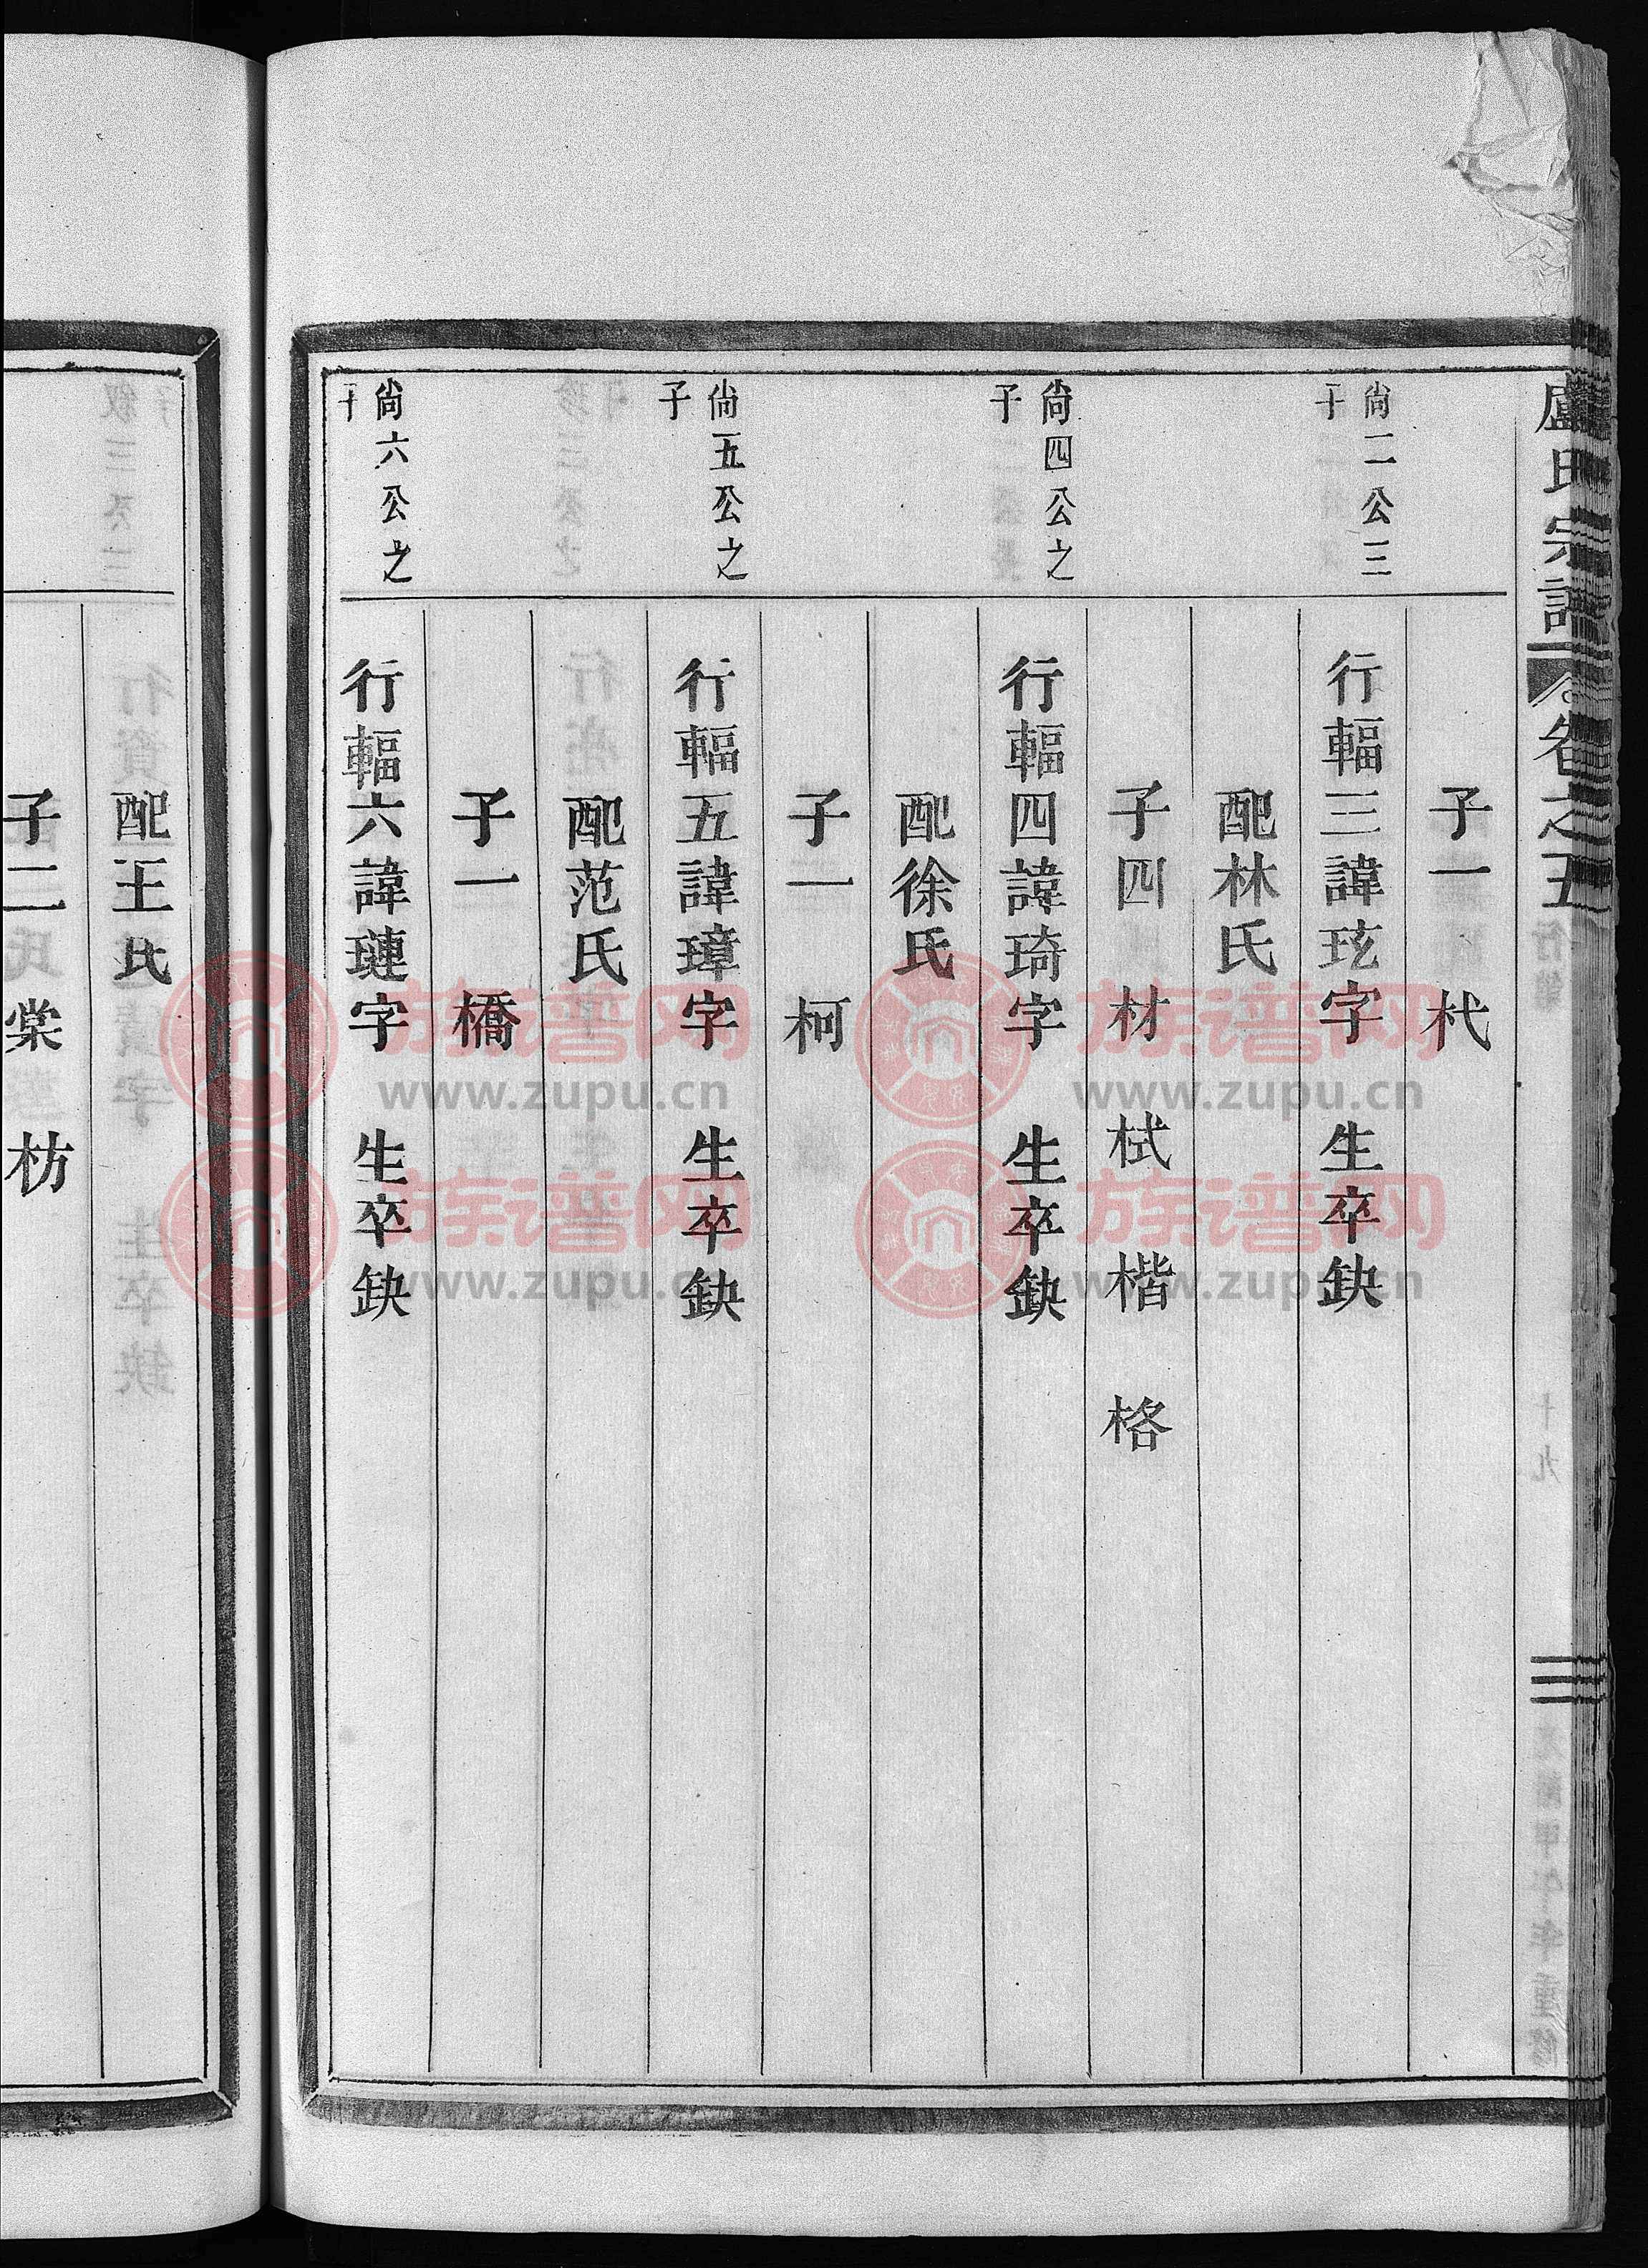 盧氏宗譜 卷之五
子一 杙
尙二公三
子
行輻三諱玹字 生卒缺
配林氏
子四 材 栻 楷 格
尙四公之
子
行輻四諱琦字 生卒缺
配徐氏
子一 柯
尙五公之
子
行輻五諱璋字 生卒缺
配范氏
子一 橋
尙六公之
子
行輻六諱璉字 生卒缺
配王氏
子二 棠 枋
族谱网
www.zupu.cn
族谱网
www.zupu.cn
族谱网
www.zupu.cn
族谱网
www.zupu.cn